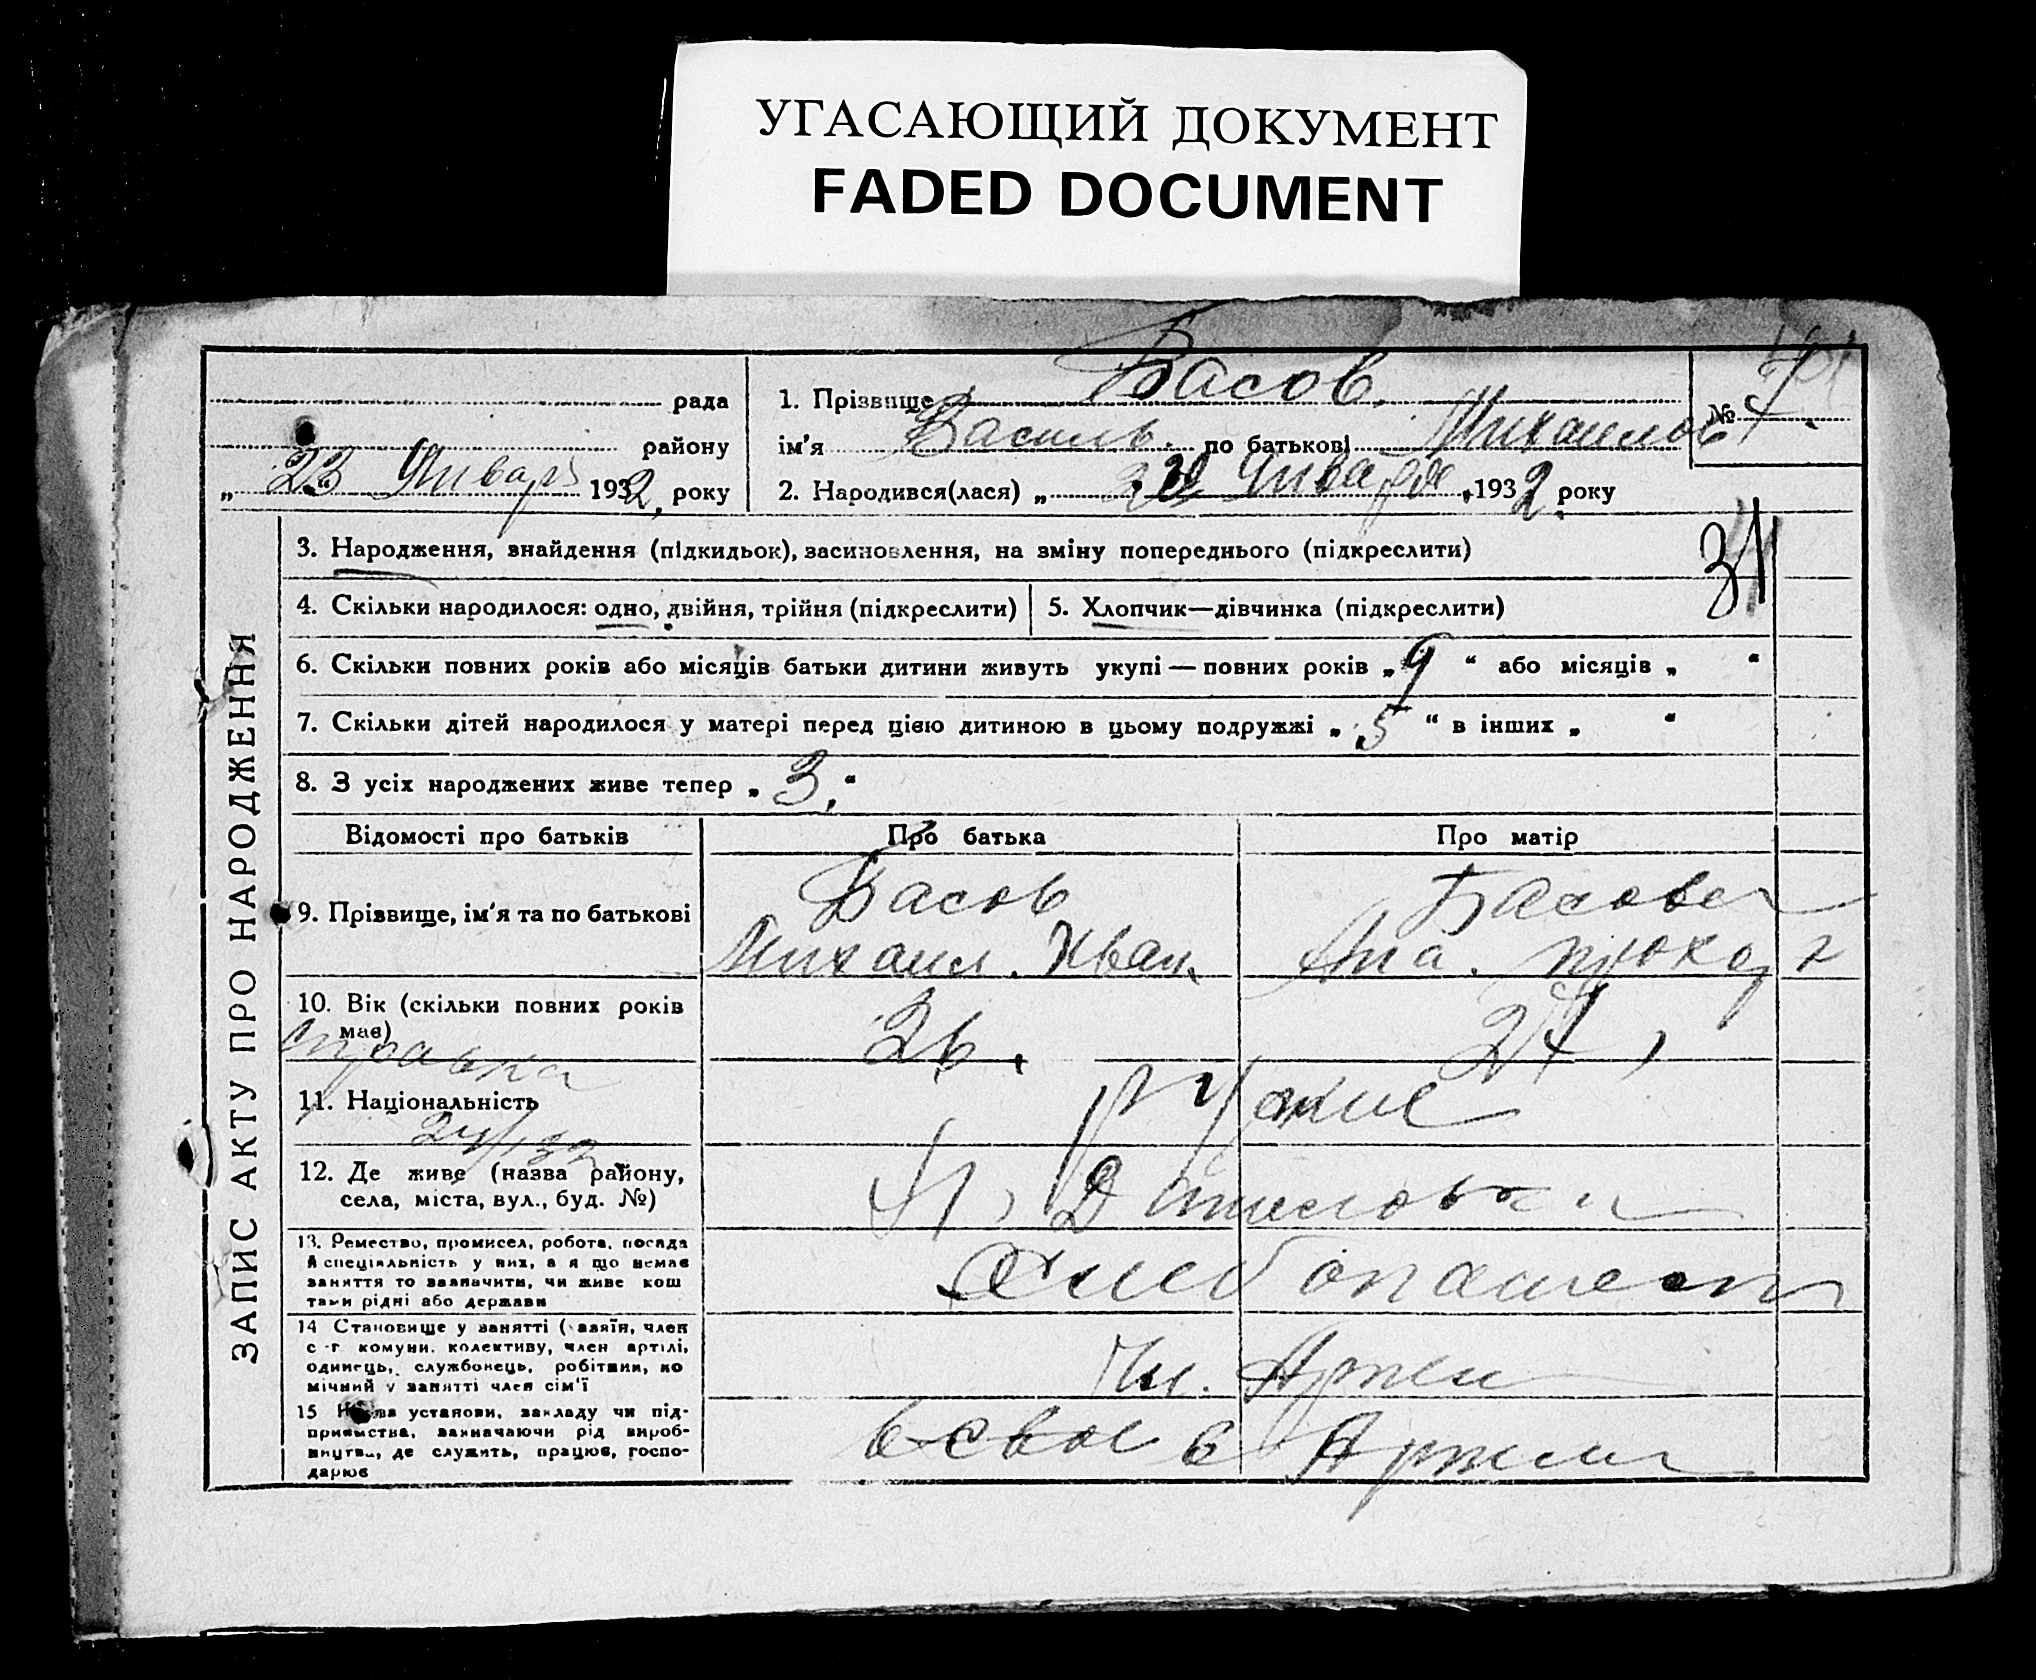 УГАСАЮЩИЙ ДОКУМЕНТ
FADED DOCUMENT
рада
району
„ 23 Январь 1932, року
1. Прізвище Басов.
ім'я Василь. по батькові Михаилов
2. Народився(лася) „ Января 1932 року
№ 7
31
ЗАПИС АКТУ ПРО НАРОДЖЕННЯ
3. Народження, знайдення (підкидьок), засиновлення, на зміну попереднього (підкреслити)
4. Скільки народилося: одно, двійня, трійня (підкреслити)
5. Хлопчик—дівчинка (підкреслити)
6. Скільки повних років або місяців батьки дитини живуть укупі — повних років „ 9 “ або місяців „ “
7. Скільки дітей народилося у матері перед цією дитиною в цьому подружжі „ 5 “ в інших „ “
8. З усіх народжених живе тепер „ 3. “
Відомості про батьків
Про батька
Про матір
9. Прізвище, ім'я та по батькові
Басов
Михаил. Иван
Басова
10. Вік (скільки повних років
має)
26.
27,
справка
11. Національність
12. Де живе (назва району,
села, міста, вул., буд. №)
13. Ремество, промисел, робота, посада
й спеціяльність у них, а я що немає
заняття то зазначити, чи живе кош
тами рідні або держави
Хлебопашест
14 Становище у занятті (хазяїн, член
с-г комуни, колективу, член артілі,
одинець, службовець, робітник, по
мічний у занятті член сім'ї
Чл. Артели
15 Назва установи, закладу чи під-
приємства, зазначаючи рід вироб-
ництва, де служить, працює, госпо-
дарює
в свое в Артели